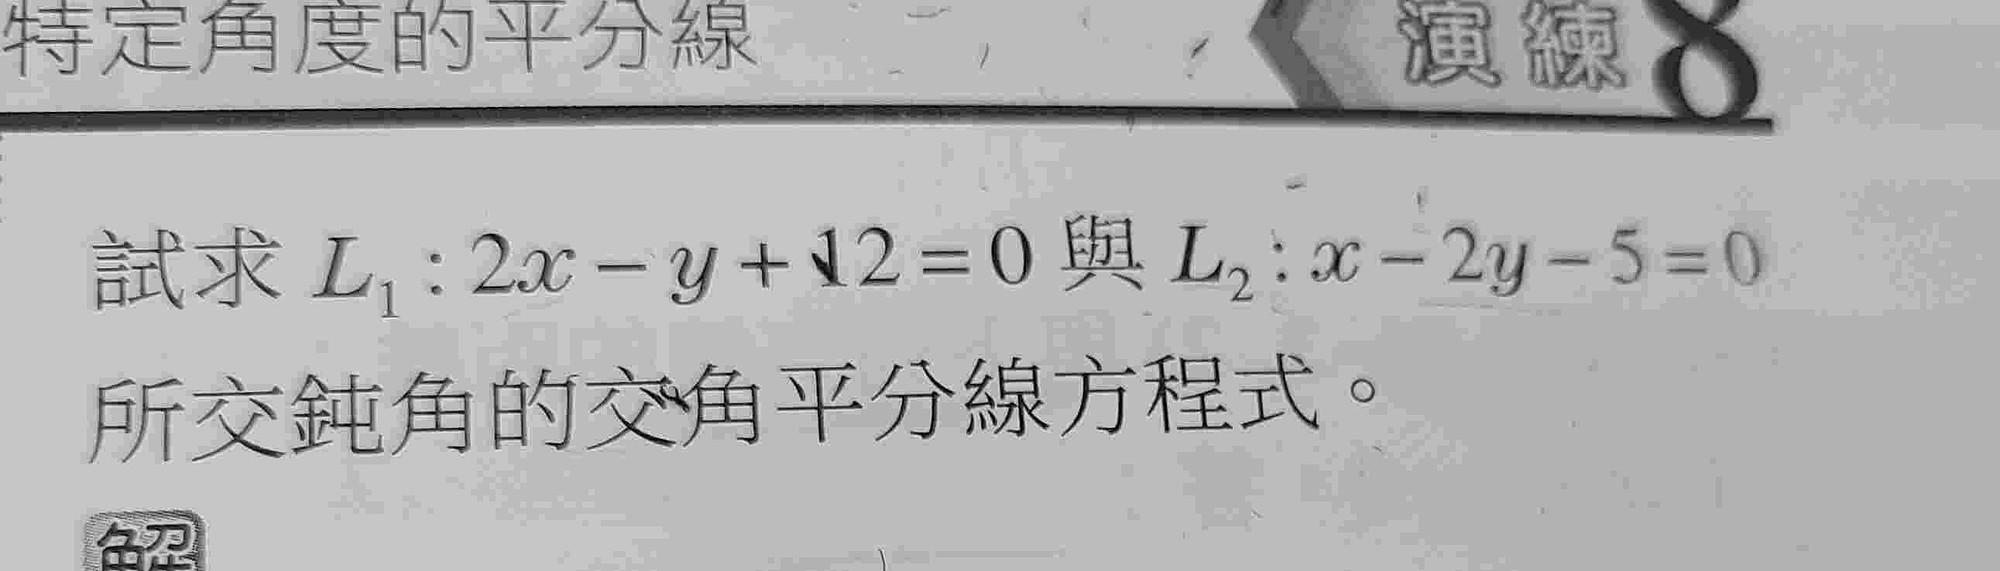 特定角度的平分線 演練8
試求 L₁ : 2x − y + 12 = 0 與 L₂ : x − 2y − 5 = 0
所交鈍角的交角平分線方程式。
解